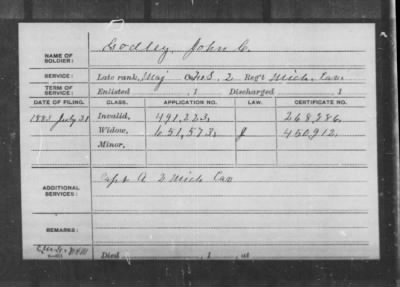 NAME OF SOLDIER: Godley, John C.
SERVICE: Late rank, Maj F&S. 2 Reg't Mich. Cav.
TERM OF SERVICE: Enlisted , 1 Discharged , 1
DATE OF FILING. CLASS. APPLICATION NO. LAW. CERTIFICATE NO.
1883 July 31 Invalid, 491,223, 268,286,
Widow, 651,573, J 450,912,
Minor,
ADDITIONAL SERVICES: Capt A 2 Mich Cav
REMARKS:
Died , 1 , at